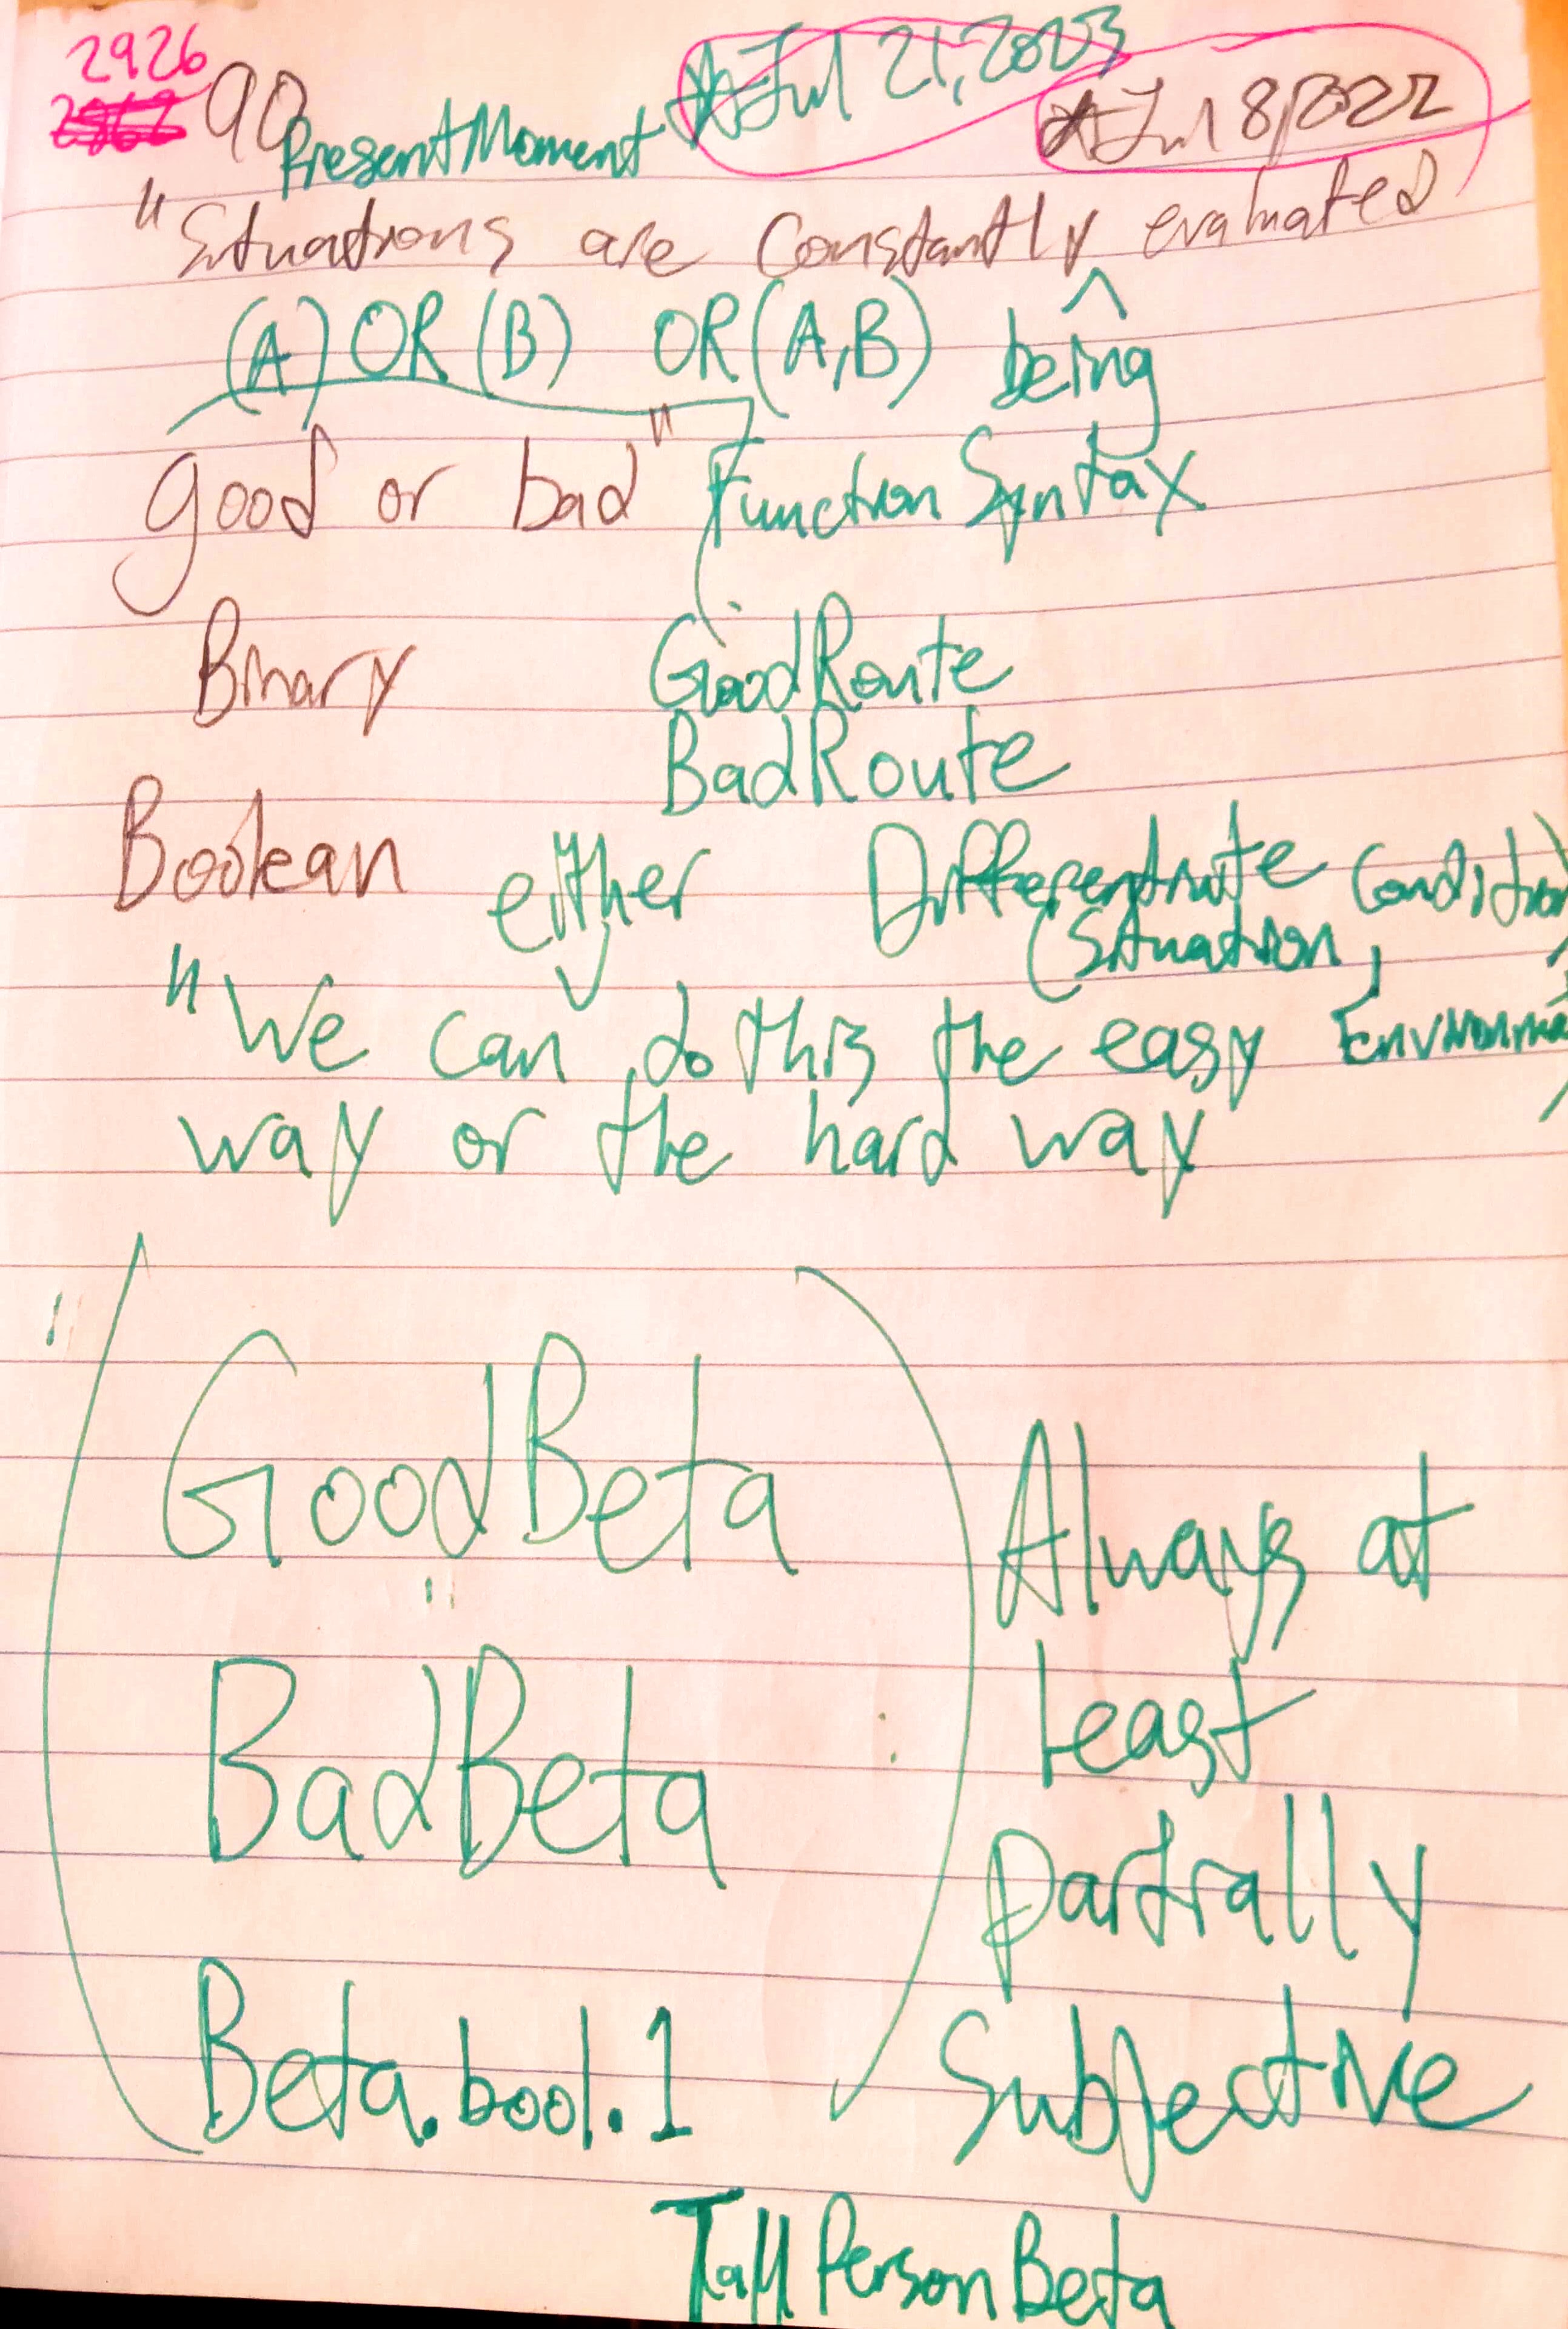 2926
90 Jul 21, 2023
PresentMoment Jul 8, 2022
"Situations are constantly evaluated
(A) OR (B) OR (A,B) ^ being
good or bad" FunctionSyntax
Binary GoodRoute
BadRoute
Boolean either Differentiate Condition
(Situation,
"We can do this the easy
way or the hard way
GoodBeta
BadBeta
Beta.bool.1
Always at
least
partially
Subjective
TallPersonBeta